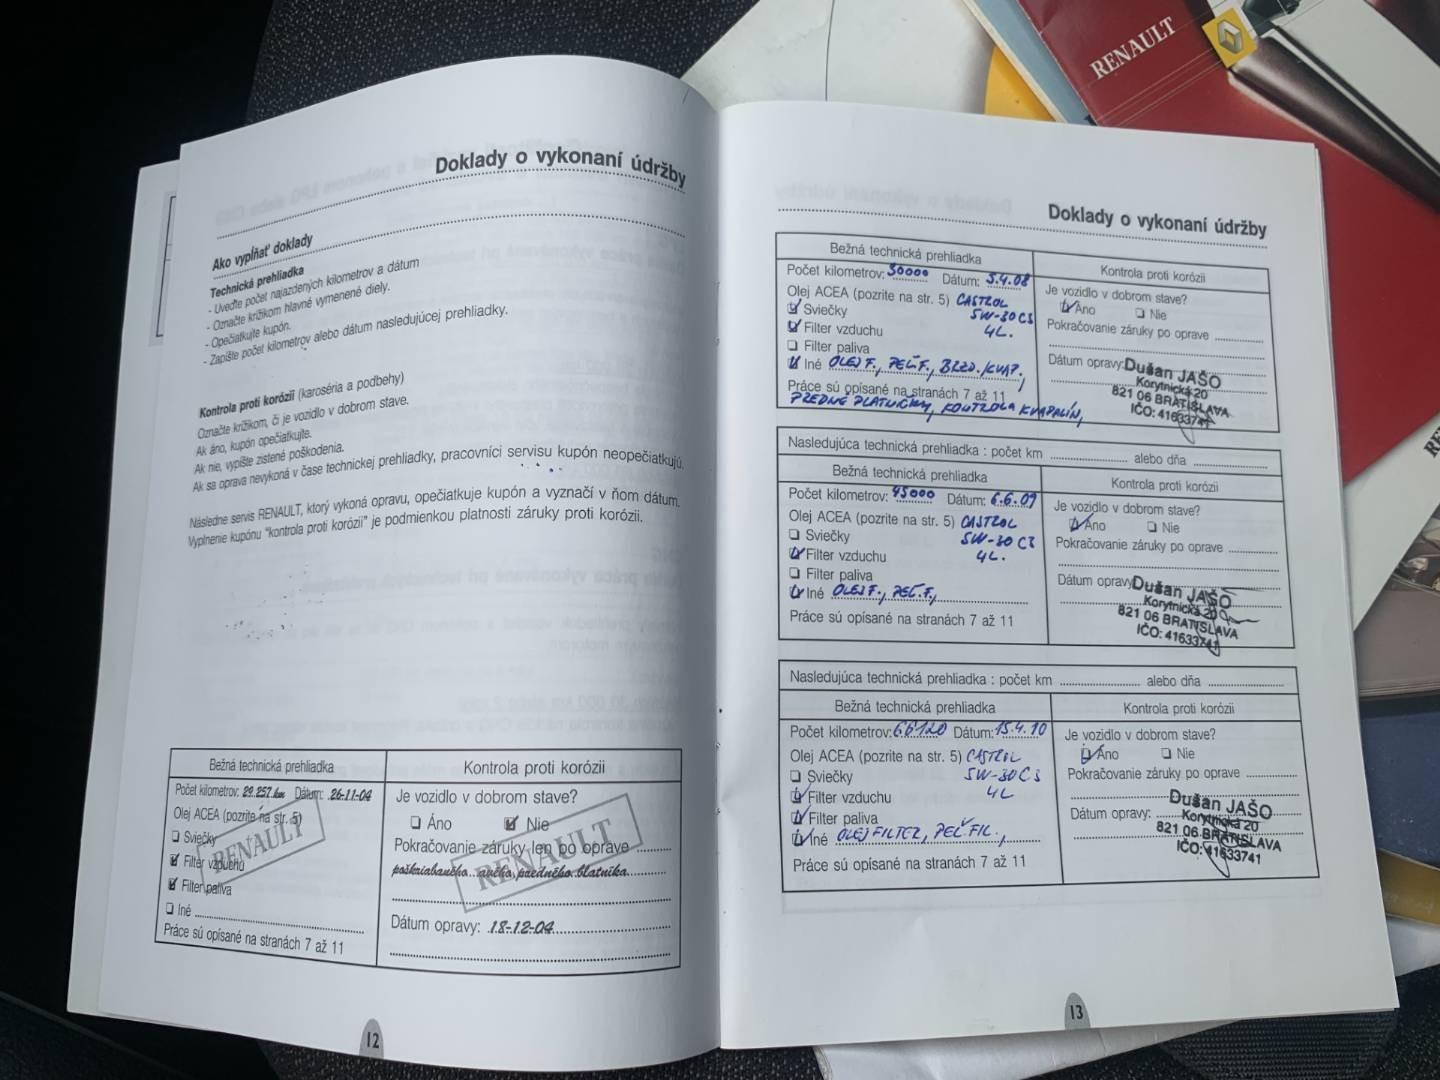 RENAULT
Doklady o vykonaní údržby
Ako vypĺňať doklady
Technická prehliadka
- Uveďte počet najazdených kilometrov a dátum
- Označte krížikom hlavné vymenené diely.
- Opečiatkujte kupón.
- Zapíšte počet kilometrov alebo dátum nasledujúcej prehliadky.
Kontrola proti korózii (karoséria a podbehy)
Označte krížikom, či je vozidlo v dobrom stave.
Ak áno, kupón opečiatkujte.
Ak nie, vypíšte zistené poškodenia.
Ak sa oprava nevykoná v čase technickej prehliadky, pracovníci servisu kupón neopečiatkujú.
Následne servis RENAULT, ktorý vykoná opravu, opečiatkuje kupón a vyznačí v ňom dátum.
Vyplnenie kupónu "kontrola proti korózii" je podmienkou platnosti záruky proti korózii.
Bežná technická prehliadka
Počet kilometrov: 29.257 km Dátum: 26-11-04
Olej ACEA (pozrite na str. 5)
Sviečky
Filter vzduchu
Filter paliva
Iné
Práce sú opísané na stranách 7 až 11
RENAULT
Kontrola proti korózii
Je vozidlo v dobrom stave?
Áno Nie
Pokračovanie záruky len po oprave
poškriabaného predného blatníka
Dátum opravy: 18-12-04
RENAULT
12
Doklady o vykonaní údržby
Bežná technická prehliadka
Počet kilometrov: 30000 Dátum: 5.4.08
Olej ACEA (pozrite na str. 5) CASTROL
Sviečky 5W-30 C3
Filter vzduchu 4L.
Filter paliva
Iné OLEJ F., PEĽ F., BRZD. KVAP.,
Práce sú opísané na stranách 7 až 11
PREDNÉ PLATNIČKY, KONTROLA KVAPALÍN,
Kontrola proti korózii
Je vozidlo v dobrom stave?
Áno Nie
Pokračovanie záruky po oprave
Dátum opravy:
Dušan JAŠO
Korytnická 20
821 06 BRATISLAVA
IČO: 41633741
Nasledujúca technická prehliadka : počet km alebo dňa
Bežná technická prehliadka
Počet kilometrov: 45000 Dátum: 6.6.09
Olej ACEA (pozrite na str. 5) CASTROL
Sviečky 5W-30 C3
Filter vzduchu 4L.
Filter paliva
Iné OLEJ F., PEĽ. F.,
Práce sú opísané na stranách 7 až 11
Kontrola proti korózii
Je vozidlo v dobrom stave?
Áno Nie
Pokračovanie záruky po oprave
Dátum opravy:
Dušan JAŠO
Korytnická 20
821 06 BRATISLAVA
IČO: 41633741
Nasledujúca technická prehliadka : počet km alebo dňa
Bežná technická prehliadka
Počet kilometrov: 66120 Dátum: 15.4.10
Olej ACEA (pozrite na str. 5) CASTROL
Sviečky 5W-30 C3
Filter vzduchu 4L
Filter paliva
Iné OLEJ FILTER, PEĽ FIL.,
Práce sú opísané na stranách 7 až 11
Kontrola proti korózii
Je vozidlo v dobrom stave?
Áno Nie
Pokračovanie záruky po oprave
Dátum opravy:
Dušan JAŠO
Korytnická 20
821 06 BRATISLAVA
IČO: 41633741
13